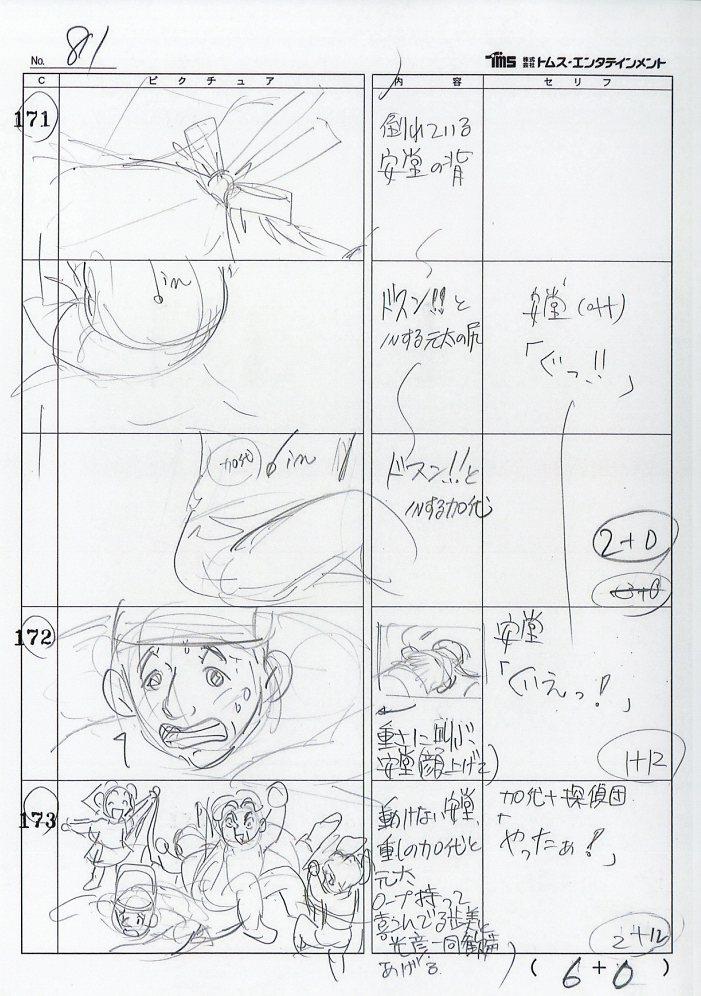 No. 81
TMS 株式会社 トムス・エンタテインメント
C ピクチュア 内容 セリフ
171
倒れている
安堂の背
in
ドスン!!と
INする元太の尻
安堂(off)
「ぐっ!!」
加代 in
ドスン!!と
INする加代
2+0
172
安堂
「ぐえっ!」
重さに叫ぶ、
安堂(顔上げて)
1+12
173
動けない安堂、
重しの加代と
元太
ロープ持って
喜んでる歩美と
光彦一同歓声
あげる
加代+探偵団
「やったぁ!」
2+12
(6+0)